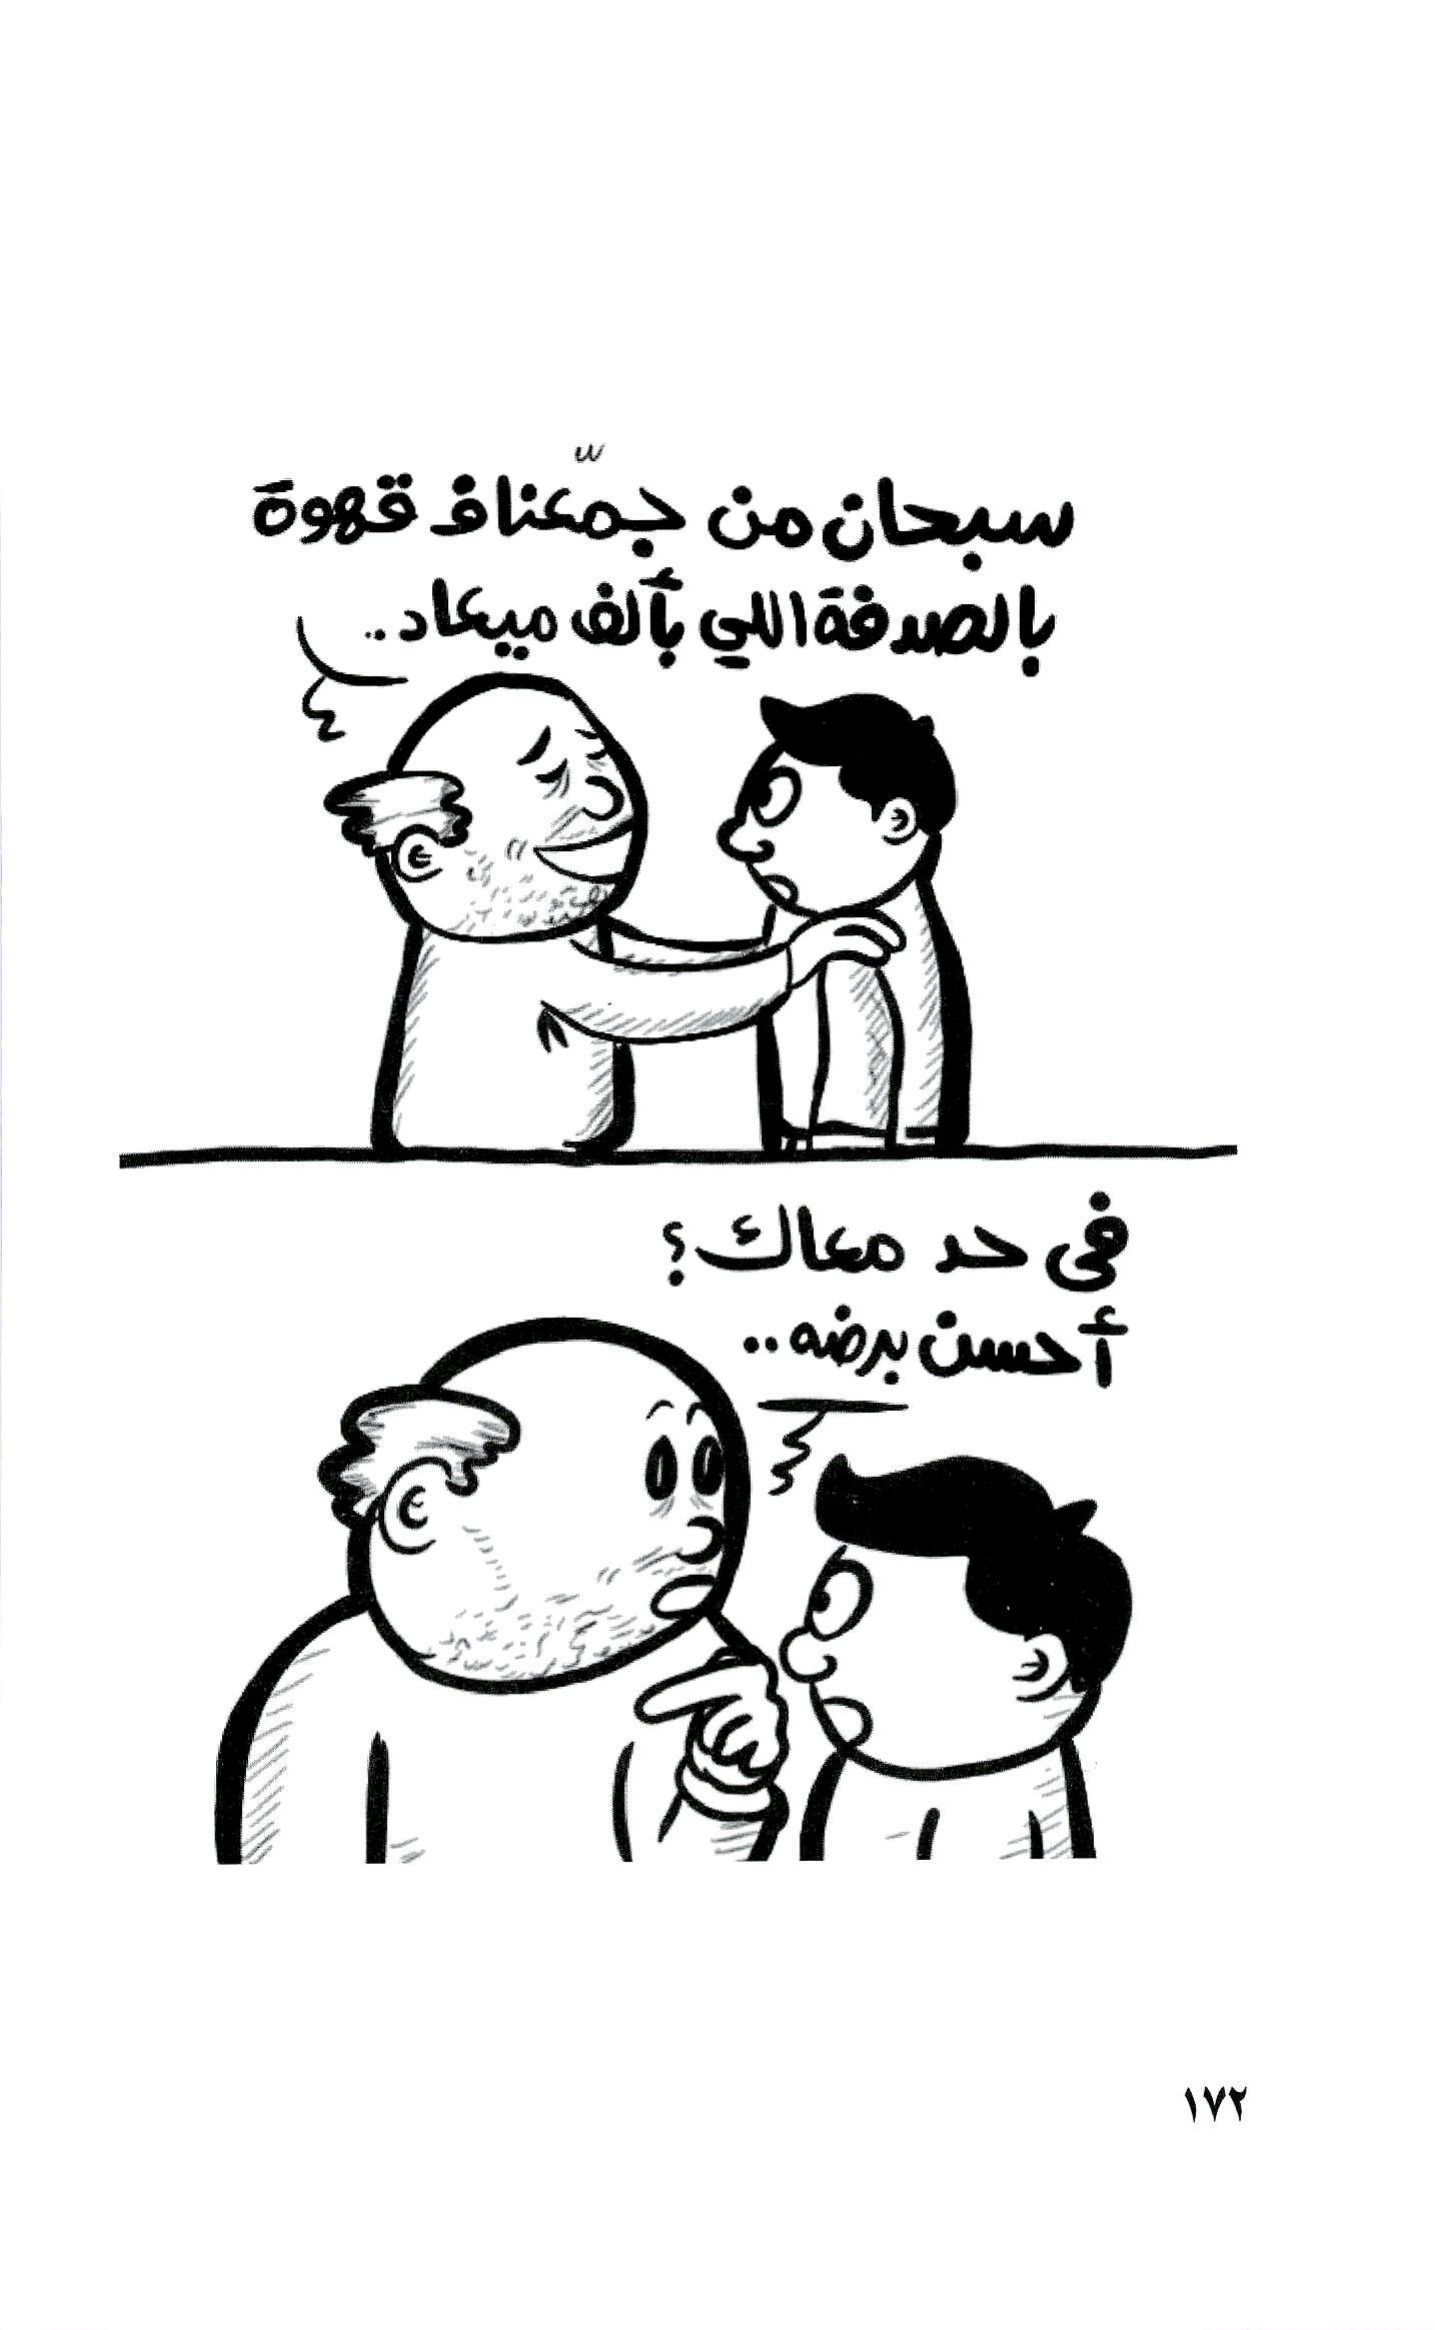 سبحان من جمّعنا ف قهوة
بالصدفة اللي بألف ميعاد..
في حد معاك؟
أحسن برضه..
١٧٢